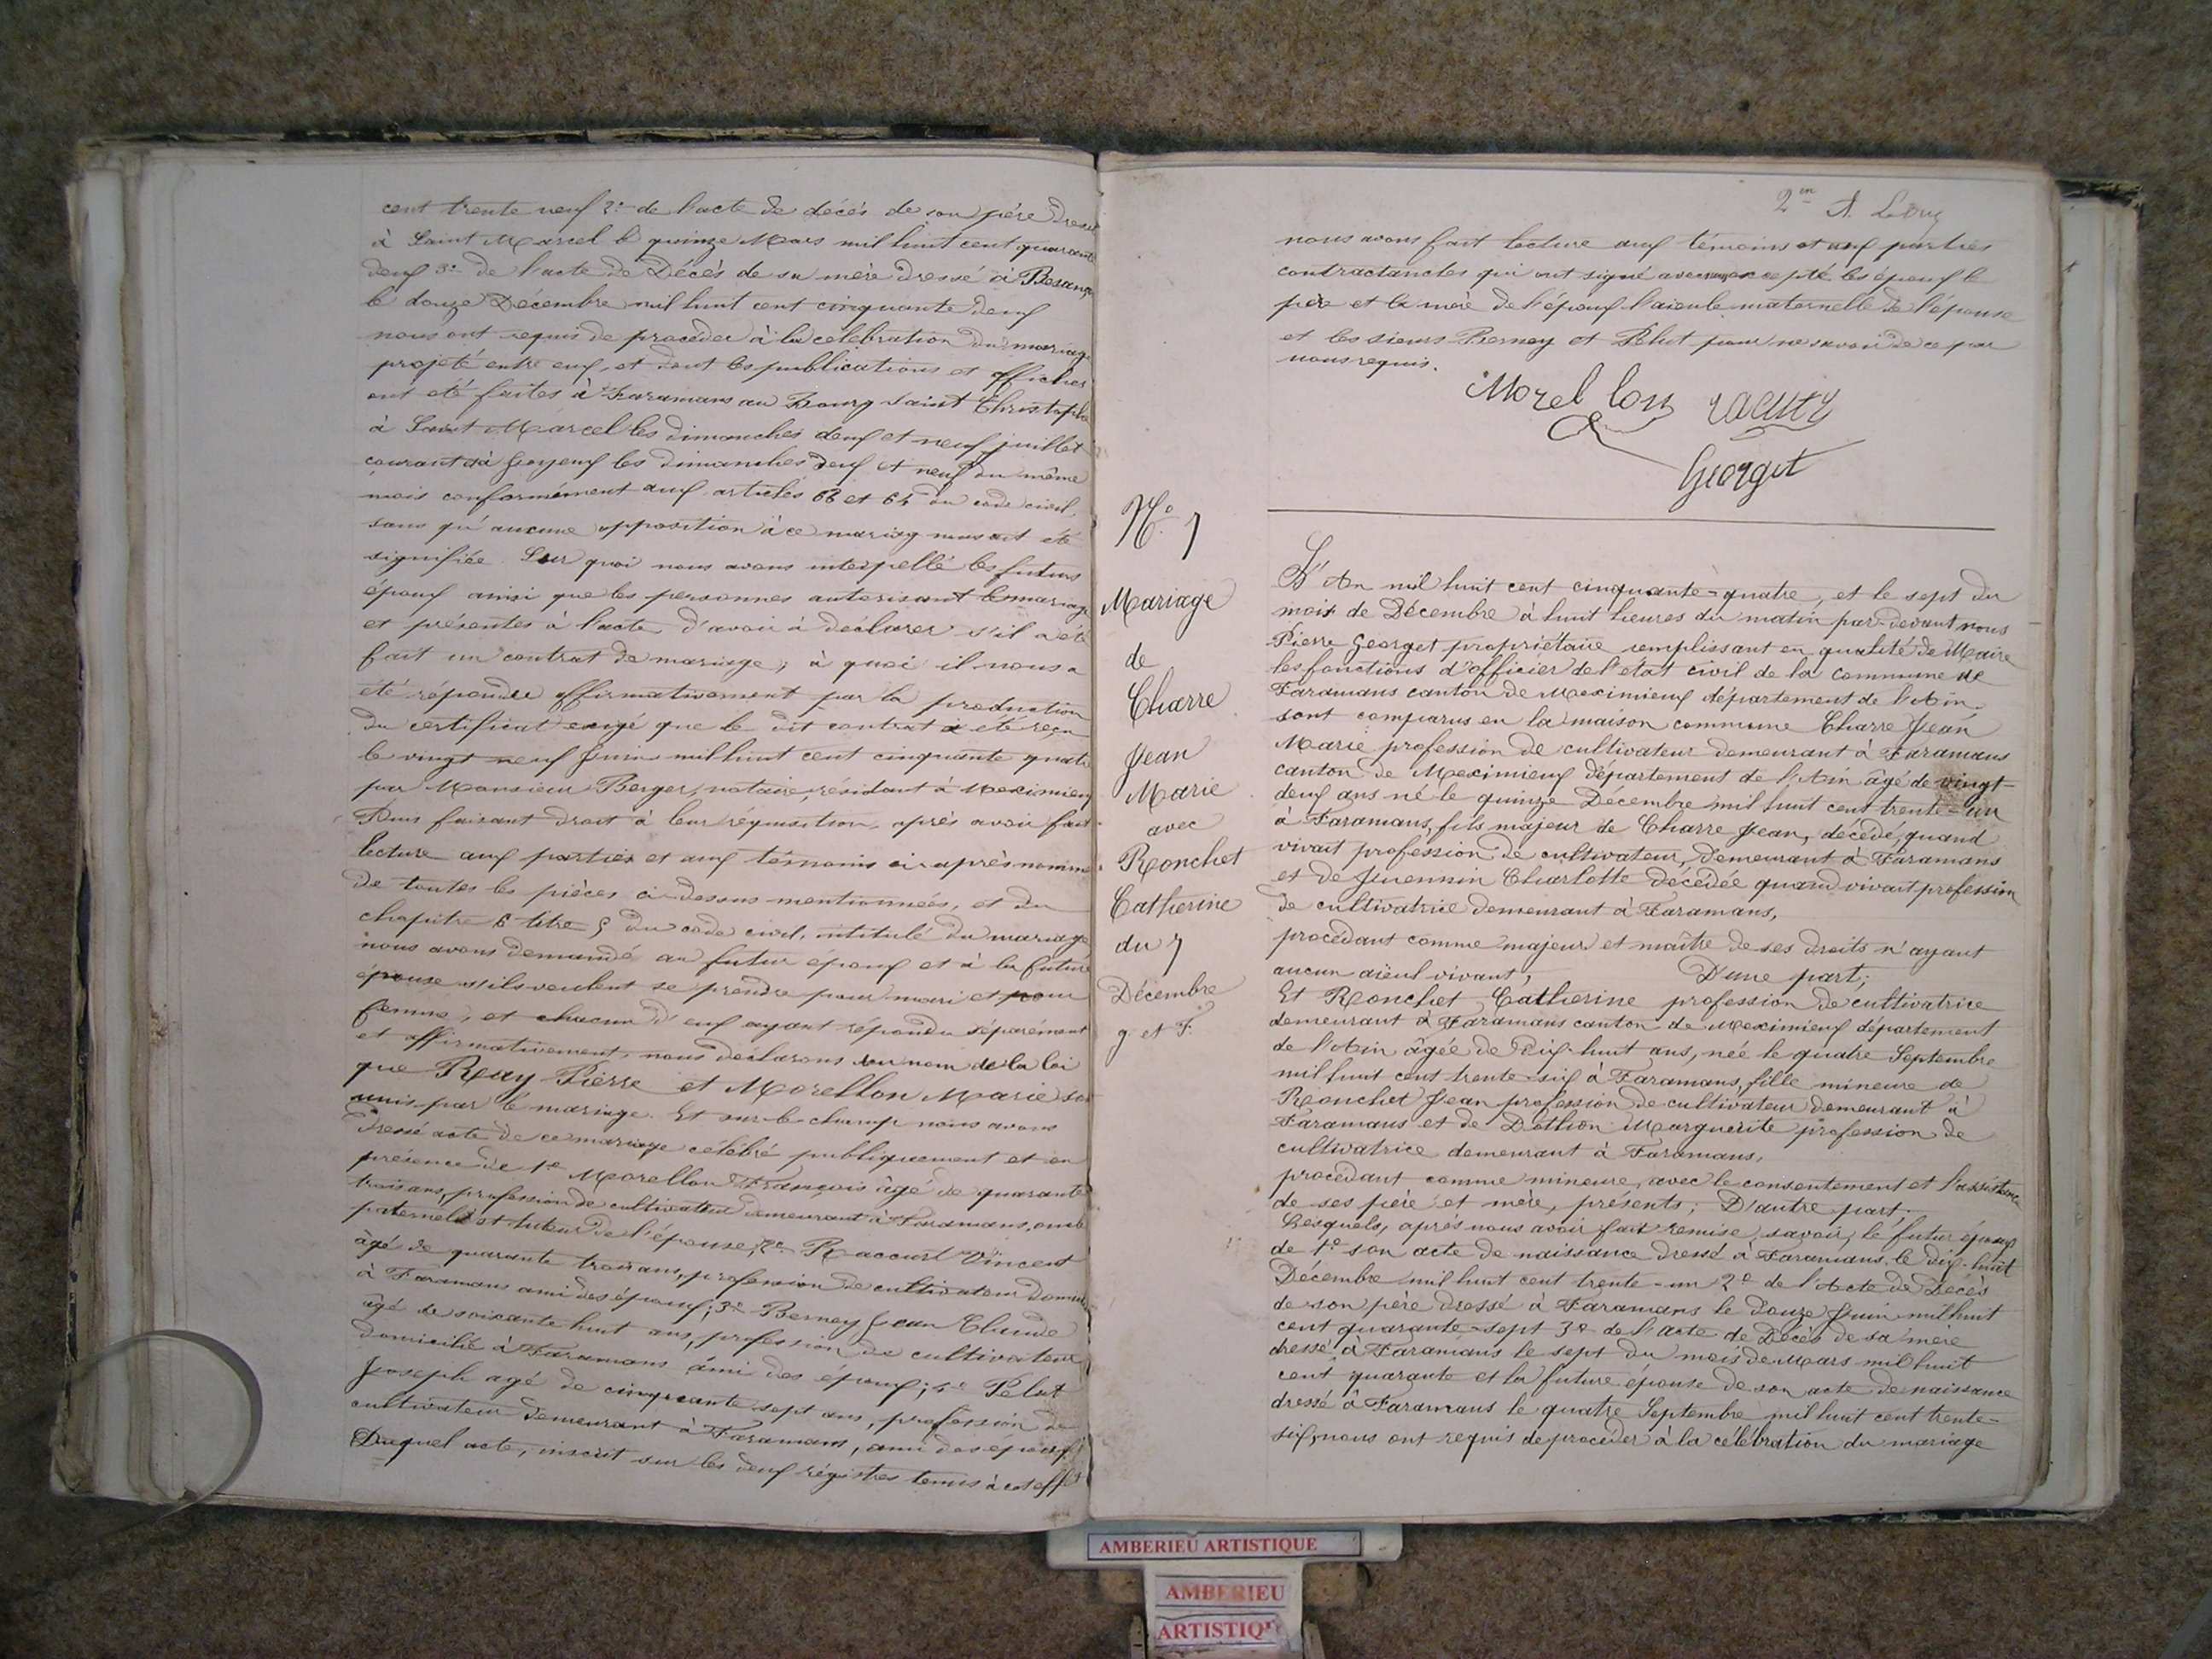 cent trente neuf 2° de l'acte de décès de son père dressé
à Saint Marcel le quinze Mars mil huit cent quarante
deux 3° de l'acte de Décès de sa mère dressé à
le douze Décembre mil huit cent cinquante deux
nous ont requis de procéder à la célébration du mariage
projeté entre eux, et dont les publications et affiches
ont été faites à Faramans au Bourg Saint Christophe
à Saint Marcel les dimanches deux et neuf juillet
courant et à les dimanches deux et neuf du même
mois conformément aux articles 63 et 64 du code civil,
sans qu'aucune opposition à ce mariag nous ait été
signifiée. Sur quoi nous avons interpellé les futurs
époux ainsi que les personnes autorisant le mariage
et présentes à l'acte d'avoir à déclarer s'il a été
fait un contrat de mariage, à quoi il nous a
été répondu affirmativement par la production
du certificat exigé que le dit contrat a été reçu
le vingt neuf Juin mil huit cent cinquante quatre
par Monsieur Berger, notaire, résidant à Meximieux
Puis faisant droit à leur réquisition, après avoir fait
lecture aux parties et aux témoins ci-après nommé
de toutes les pièces ci-dessus mentionnées, et du
chapitre 6 titre 5 du code civil, intitulé du mariage
nous avons demandé au futur epoux et à la future
épouse s'ils veulent se prendre pour mari et pour
femme, et chacun d'eux ayant répondu séparément
et affirmativement, nous déclarons au nom de la loi
que Ray Pierre et Morellon Marie sont
unis par le mariage. Et sur le champ nous avons
dressé acte de ce mariage célébré publiquement et en
présence de 1° Morellon François âgé de quarante
trois ans, profession de cultivateur demeurant à Faramans, oncle
paternel et tuteur de l'épouse; 2° Raccurt Vincent
âgé de quarante trois ans, profession de cultivateur
à Faramans ami des époux; 3° Berney Jean Claude
âgé de soixante huit ans, profession de cultivateur
domicilié à Faramans ami des époux; 4° Pelut
Joseph agé de cinquante sept ans, profession de
cultivateur demeurant à Faramans, ami des époux;
Duquel acte, inscrit sur les deux régistres tenus à cet effet
nous avons fait lecture aux témoins et aux parties
contractantes qui ont signé avec nous excepté les époux le
père et la mère de l'époux l'aieule maternelle de l'épouse
et les sieurs Berney et Pelut pour ne savoir de ce par
nous requis.
Morel lon racurt
Georget
N° 7
Mariage
de
Charre
Jean
Marie
avec
Ronchet
Catherine
du 7
Décembre
g. et F.
L'An mil huit cent cinquante-quatre, et le sept du
mois de Décembre à huit heures du matin par-devant nous
Pierre Georget propriétaire remplissant en qualité de Maire
les fonctions d'officier de l'état civil de la commune de
Faramans canton de Meximieux département de l'Ain,
sont comparus en la maison commune Charre Jean
Marie profession de cultivateur demeurant à Faramans
canton de Meximieux département de l'Ain âgé de vingt-
deux ans né le quinze Décembre mil huit cent trente-un
à Faramans, fils majeur de Charre Jean, décédé, quand
vivait profession de cultivateur, demeurant à Faramans
et de Juennin Charlotte décédée quand vivait profession
de cultivatrice demeurant à Faramans,
procédant comme majeur et maître de ses droits n'ayant
aucun aïeul vivant, D'une part;
Et Ronchet Catherine profession de cultivatrice
demeurant à Faramans canton de Meximieux département
de l'Ain âgée de Dix-huit ans, née le quatre Septembre
mil huit cent trente-six à Faramans, fille mineure de
Ronchet Jean profession de cultivateur demeurant à
Faramans et de Dothion Marguerite profession de
cultivatrice demeurant à Faramans,
procédant comme mineure, avec le consentement et l'assistance
de ses père et mère, présents; D'autre part;
Lesquels, après nous avoir fait remise, savoir, le futur époux
de 1° son acte de naissance dressé à Faramans le dix-huit
Décembre mil huit cent trente-un 2° de l'Acte de Décès
de son père dressé à Faramans le douze Juin mil huit
cent quarante-sept 3° de l'acte de Décès de sa mère
dressé à Faramans le sept du mois de Mars mil huit
cent quarante et la future épouse de son acte de naissance
dressé à Faramans le quatre Septembre mil huit cent trente-
six, nous ont requis de procéder à la célébration du mariage
AMBERIEU ARTISTIQUE
AMBERIEU
ARTISTIQU